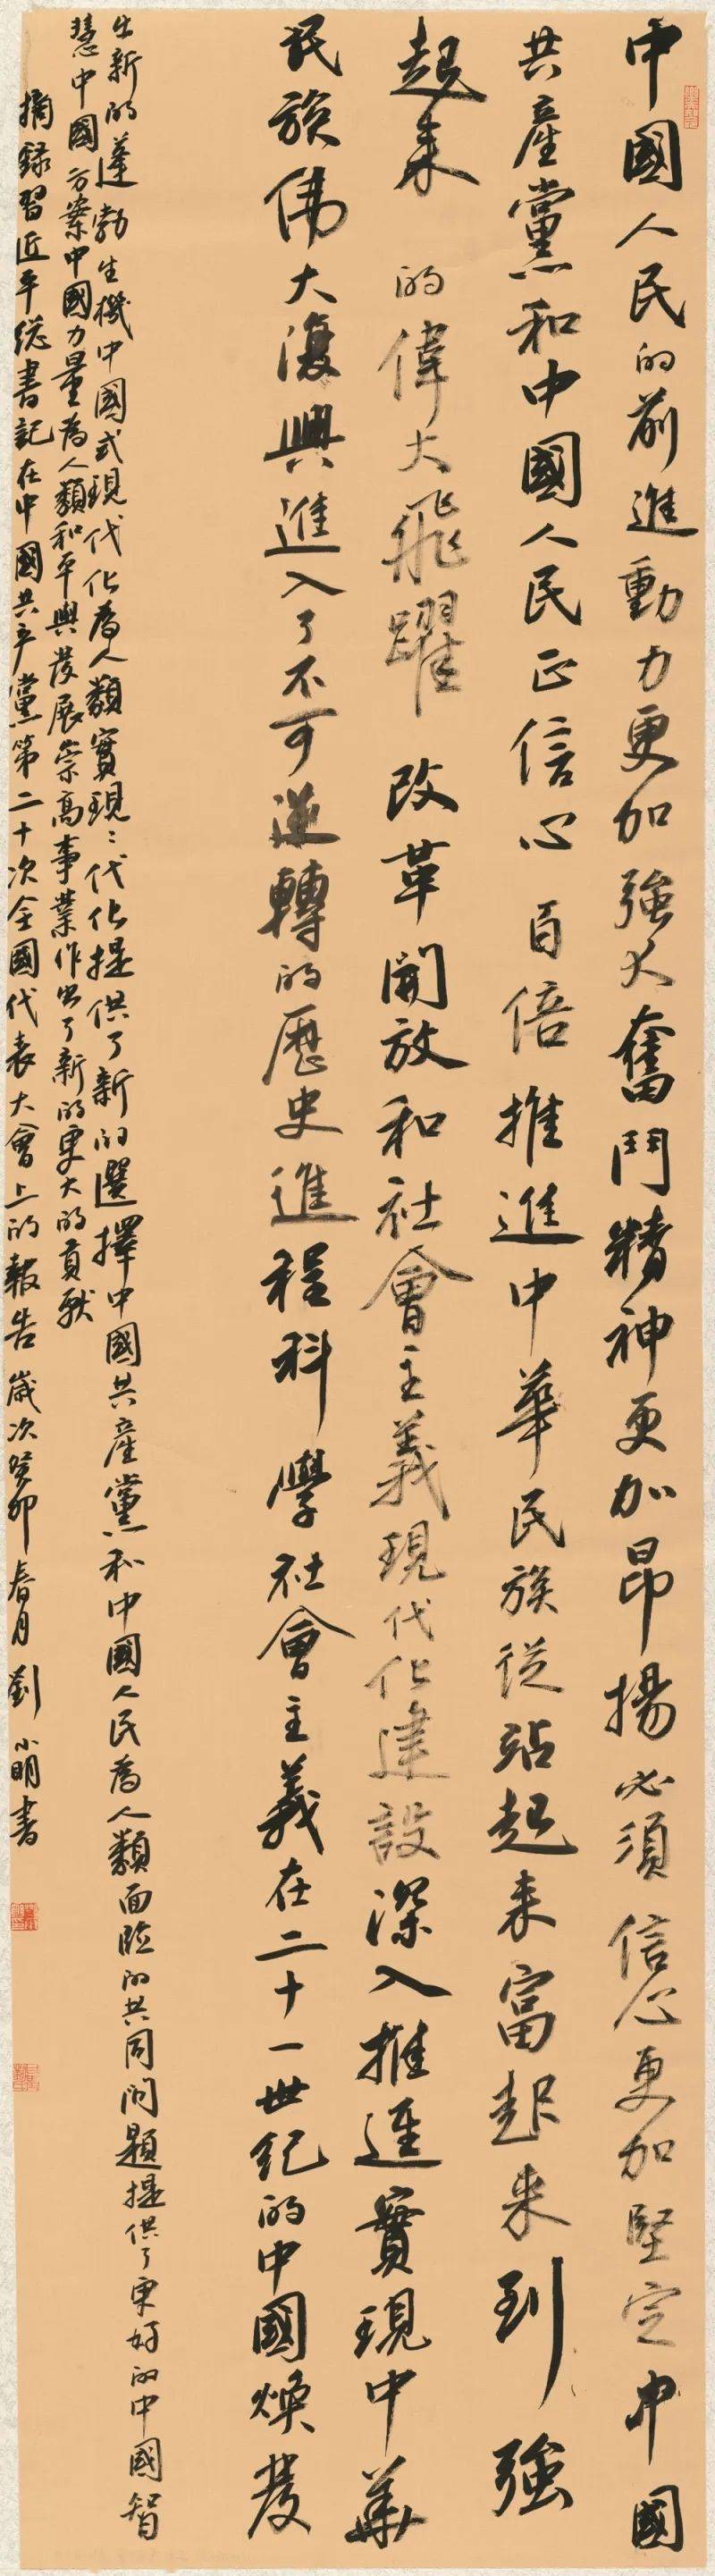 中國人民的前進動力更加強大奮鬥精神更加昂揚必須信心更加堅定中國
共產黨和中國人民正信心百倍推進中華民族從站起來富起來到強
起來的偉大飛躍改革開放和社會主義現代化建設深入推進實現中華
民族偉大復興進入了不可逆轉的歷史進程科學社會主義在二十一世紀的中國煥發
出新的蓬勃生機中國式現代化為人類實現現代化提供了新的選擇中國共產黨和中國人民為人類面臨的共同問題提供了更好的中國智
慧中國方案中國力量為人類和平與發展崇高事業作出了新的更大的貢獻
摘錄習近平總書記在中國共产黨第二十次全國代表大會上的報告歲次癸卯春月劉小明書